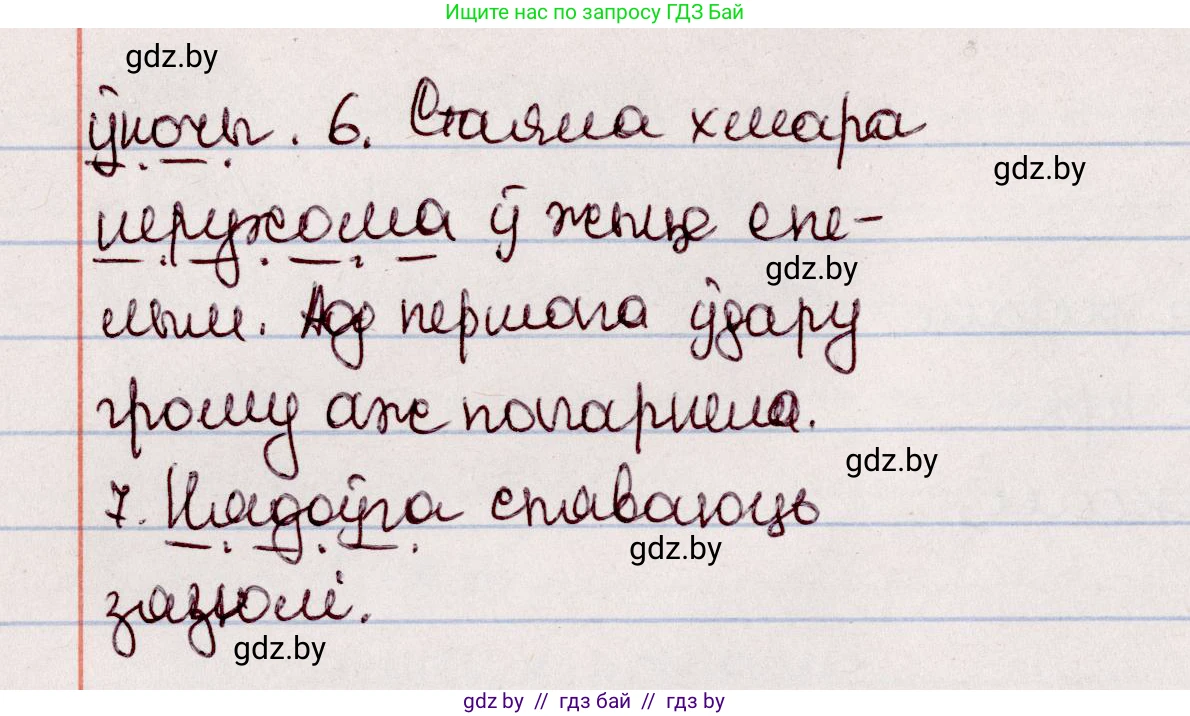 Ищите нас по запросу ГДЗ Бай
gdz.by
ўночы. 6. Стаяла хмара
gdz.by
нерухома ў жыце спе-
gdz.by
лым. Ад першага ўдару
грому аж пагарнела.
gdz.by
7. Нядоўга спяваюць
gdz.by
зязюлі.
gdz.by
gdz by // гдз бай // гдз by